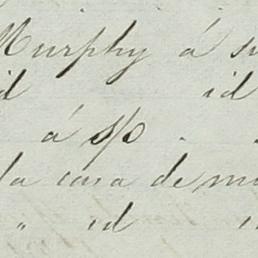 Murphy á su
id id
á s/o .
la casa de mi
" id i